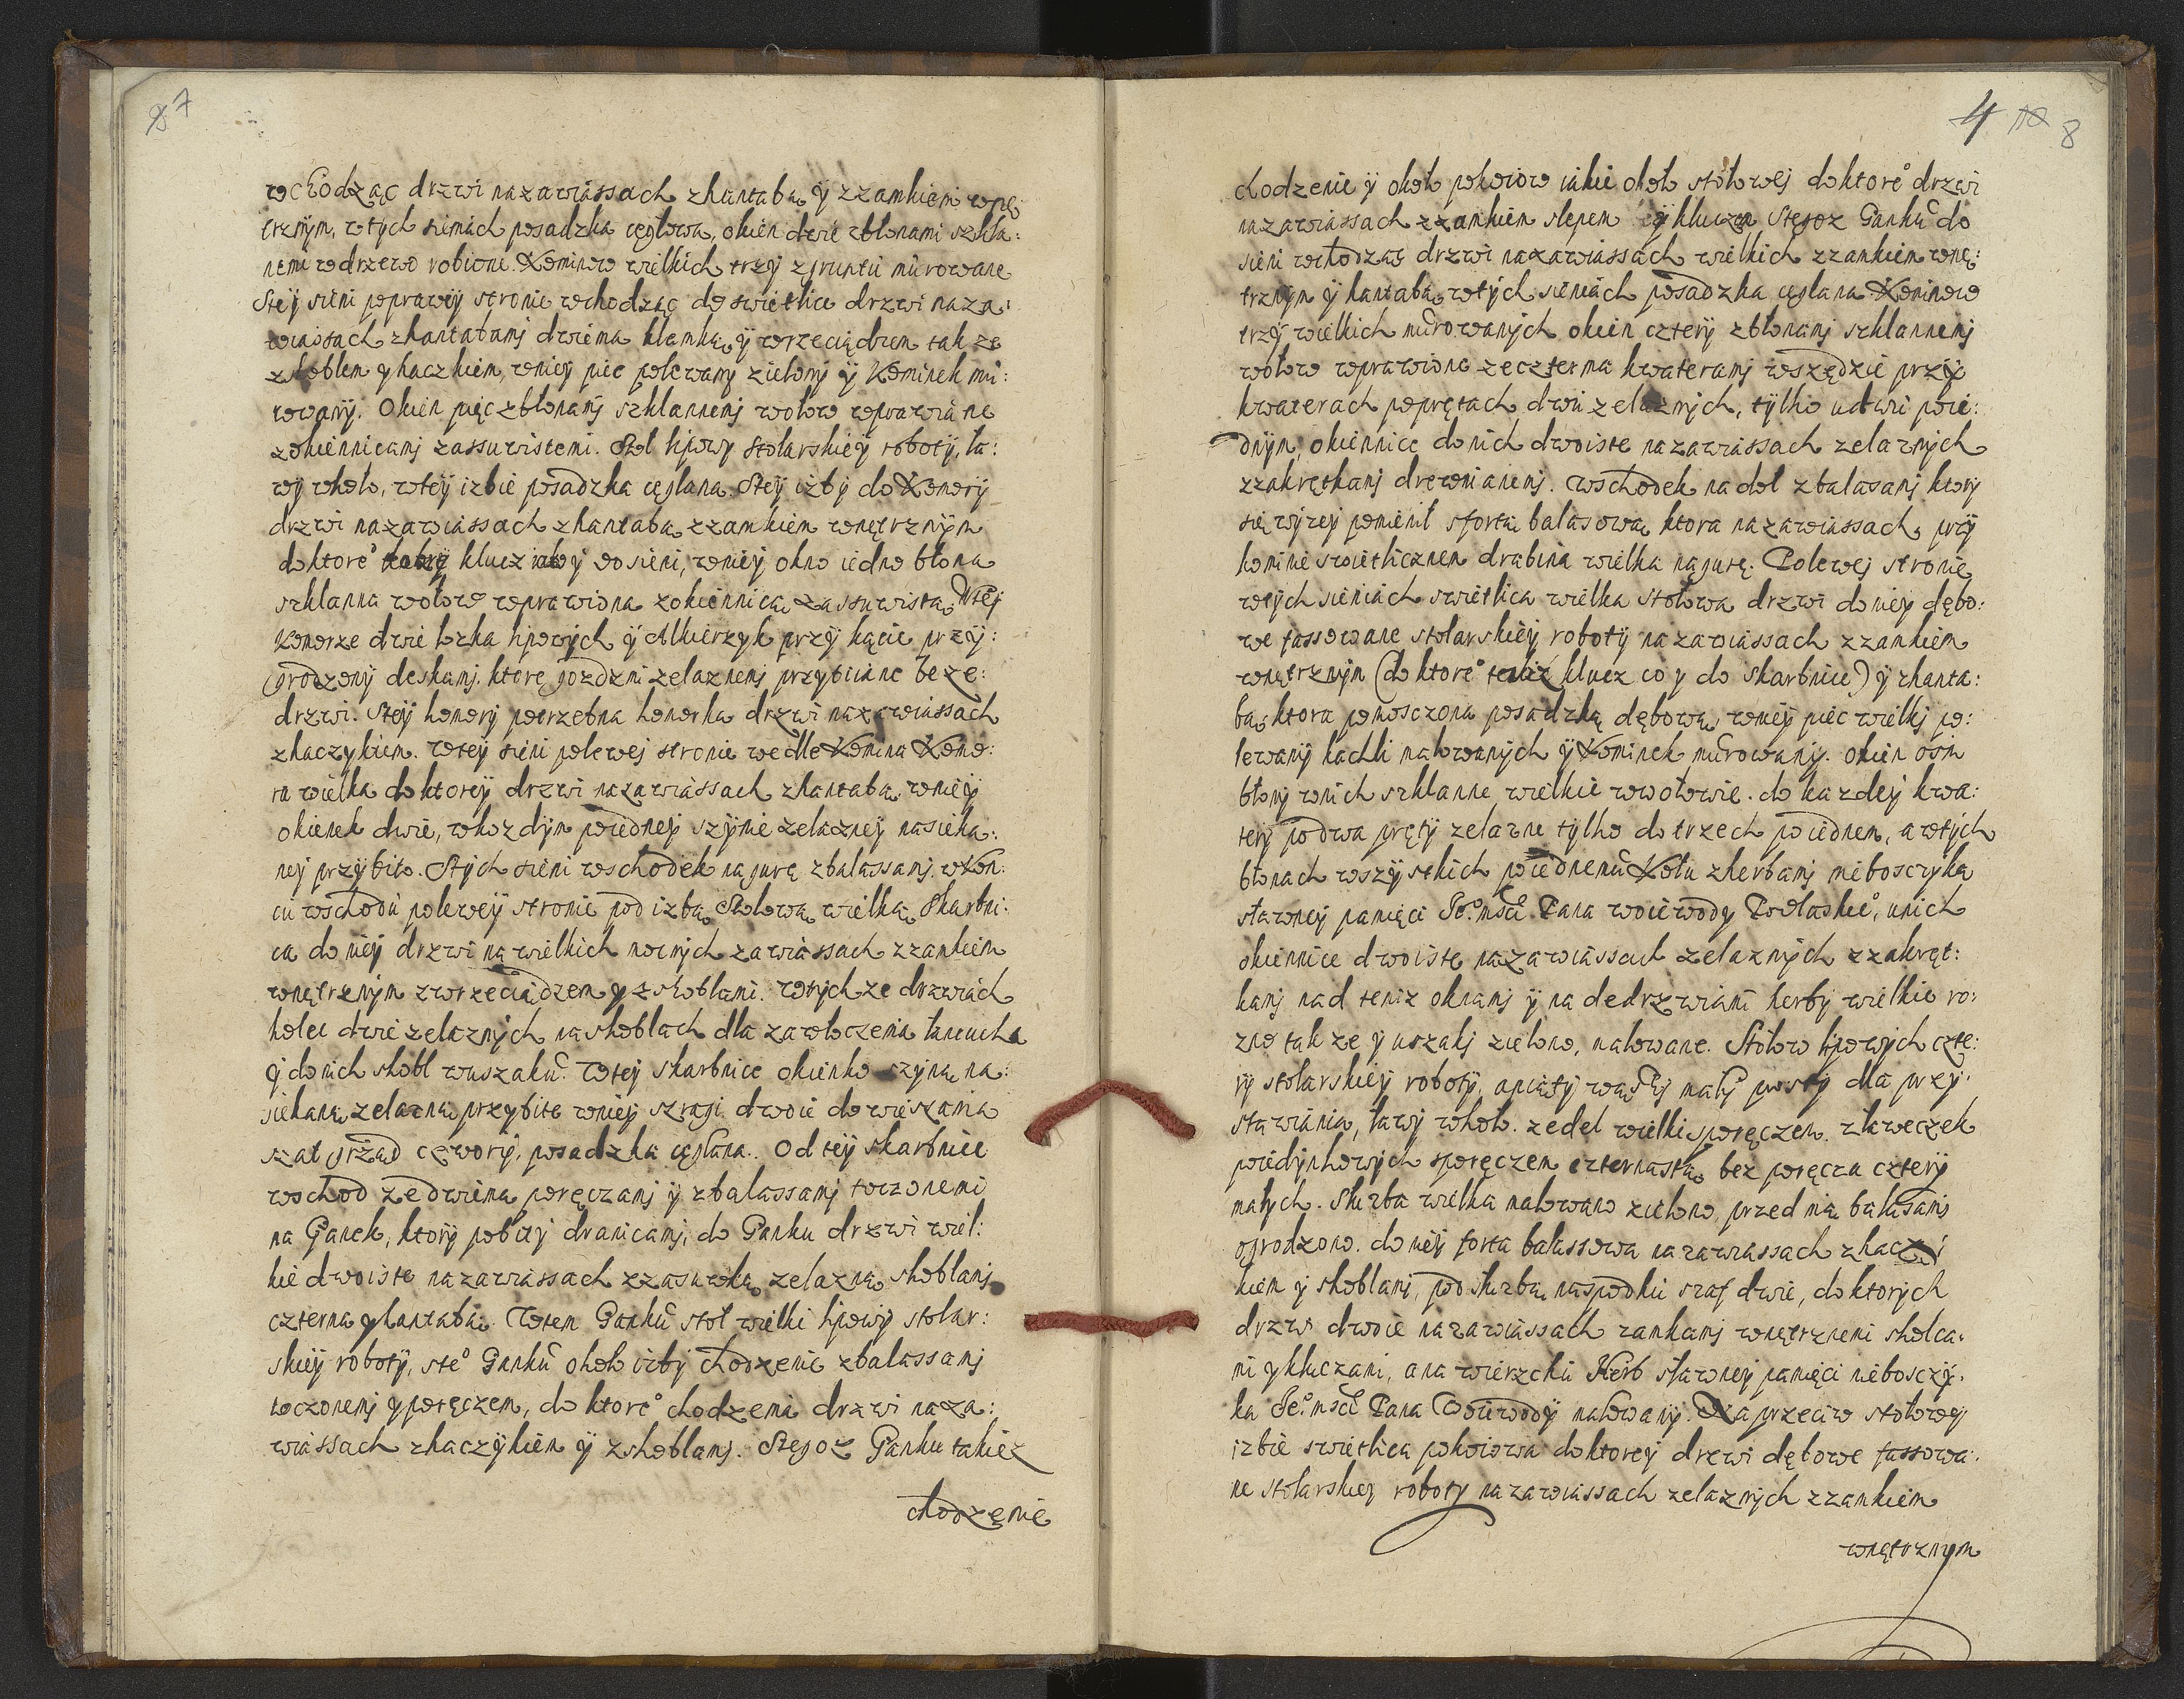 7
wchodząc drzwi nazawiassach zhantabą ÿ zzamkiem wnę
trznÿm, wtÿch sieniach posadzka ceglowa, okien dwie zblonami szkla:
nemi wdrzewo robione. Kominow wielkich trzÿ zgruntu murowane
Steÿ sieni poprawÿ stronie wchodząc do swietlice drzwi naza:
wiassach zhantabami dwiema klamką ÿ wrzeciądzem tak ze
zskoblem y haczkiem, wnieÿ piec polewany zielonÿ ÿ Kominek mu:
rowanÿ. Okien pięc zblonamj szklannemj wołow wprawiane
zokiennicamj zassuwistemi. Stol lipowy Stolarskieÿ robotÿ, ła:
wÿ wkoło, wteÿ izbie posadzka cęglana. Steÿ izbÿ do Komorÿ
drzwi nazawiassach zhantabą zzamkiem wnętrznÿm
doktore° klucz y do sieni, wnieÿ okno iedno błona
szklanna wołow wprawiona zokiennicą zassuwistą, Wteÿ
Komorze dwie łozka lipowÿch ÿ Alkierzyk przÿ kącie przÿ:
grodzonÿ deskami. ktore gozdzmi zelaznemj przybiiane beze:
drzwi. Steÿ komorÿ potrzebna komorka drzwi nazawiassach
zhaczykiem. Wteÿ sieni polewej stronie wedle Komina Komo:
ra wielka doktoreÿ drzwi nazawiassach zhantabą, wnieÿ
okienek dwie, wkozdÿm poiednej szÿnie zelazneÿ nasieka:
neÿ przÿbito. Stÿch sieni wschodek nagurę zbalassamj. wKon:
cu wschodu polewÿ stronie pod izbą Stolową wielką Skarbni:
ca do nieÿ drzwi na wielkich mocnÿch zawiassach zzamkiem
wnętrznÿm zwrzeciądzem y zskoblami. Wtÿchze drzwiach
kolec dwie zelaznÿch naskoblach dla zawłoczenia łancucha
ÿ donich skobl wuszaku. Wteÿ skarbnice okienko szÿną na:
siekaną zelazną przybite wnieÿ szragi dwoie dowieszania
szat grząd czworÿ, posadzka cęglana. Od teÿ skarbnice
wschod zedwiema poręczamj ÿ zbalassamj toczonemi
na Ganek, ktorÿ pobitÿ dranicamj, do Ganku drzwi wiel:
kie dwoiste nazawiassach zzasuwką zelazną skoblamj
czterma yhantabą. Wtem Ganku stol wielki lipowÿ stolar:
skieÿ robotÿ, ste° Ganku około izbÿ chodzenie zbalassamj
toczonemj yporęczem, do ktore° chodzenia drzwi naza:
wiassach zhaczÿkiem ÿ zskoblamj. Stegoz Ganku takiez
chodzenie
4 8
chodzenie ÿ około pokoiow iakie około stołowej doktore° drzwi
nazawiassach zzamkiem slepem ÿ kluczem Stegoz Ganku do
sieni wchodząc drzwi nazawiassach wielkich zzamkiem wnę:
trznÿm ÿ hantabą, wtÿch sieniach posadzka cęglana. Kominow
trzÿ wielkich murowanÿch okien czterÿ zblonamj szklannemj
wołow wprawione zeczterma kwateramj wszędzie przÿ
kwaterach poprętach dwu zelaznÿch, tÿlko udwu poie:
dnÿm, okiennice donich dwoiste nazawiassach zelaznÿch
zzakrętkamj drewnianemj. Wschodek na dol zbalasamj ktorÿ
się wÿzeÿ pomienił sfortą balasową ktora nazawiassach, prзÿ
kominie swietlicznem drabina wielka nagurę. Polewej stronie
wtÿch sieniach swietlica wielka stołowa drzwi do nieÿ dębo:
we fassowane stolarskieÿ robotÿ nazawiassach zzamkiem
wnętrznÿm (doktore° tenze klucz co y do Skarbnice) ÿ zhanta:
bą, ktora pomosczona posadzką dębową, wnieÿ piec wielkj po:
lewanÿ kachli malowanÿch ÿ Kominek murowanÿ. Okien osm
błonÿ wnich szklanne wielkie wwołowie. do kazdeÿ kwa:
terÿ podwa prętÿ zelazne tylko do trzech poiednem, awtÿch
błonach wszÿstkich poiednemu Kołu zherbamj nieboszczyka
sławneÿ pamięci Je°msci Pana Woiewody Podlaskie°, unich
okiennice dwoiste nazawiassach zelaznÿch zzakręt:
kamj nad temiz oknamj ÿ nadedrzwiami herbÿ wielkie ro:
zno tak ze ÿ uszakj zielono, malowane. Stołow lipowÿch czte:
rÿ stolarskieÿ robotÿ, apiątÿ małÿ prostÿ dla przÿ:
stawiania, ławÿ wkoło. zedel wielki sporęczem. zławeczek
poiedÿnkowÿch sporęczem czternastą, bez poręcza czterÿ
małÿch. Służba wielka malowano zielono, przed nią balasamj
ogrodzono. donieÿ forta balassowa nazawiassach zhaczÿ:
kiem ÿ skoblamj, podsłuzbą naspodku szaf dwie, doktorÿch
drzwi dwoie nazawiassach zamkamj wnętrznemi skolca:
mi ykluczami, ana wierzchu Herb sławneÿ pamięci nieboszczÿ:
ka Je°msci Pana Woiewodÿ malowanÿ. Naprzeciw stołoweÿ
izbie swietlica pokoiowa doktoreÿ drzwi dębowe fassowa:
ne stolarskieÿ robotÿ nazawiassach zelaznÿch zzamkiem
wnętrznym